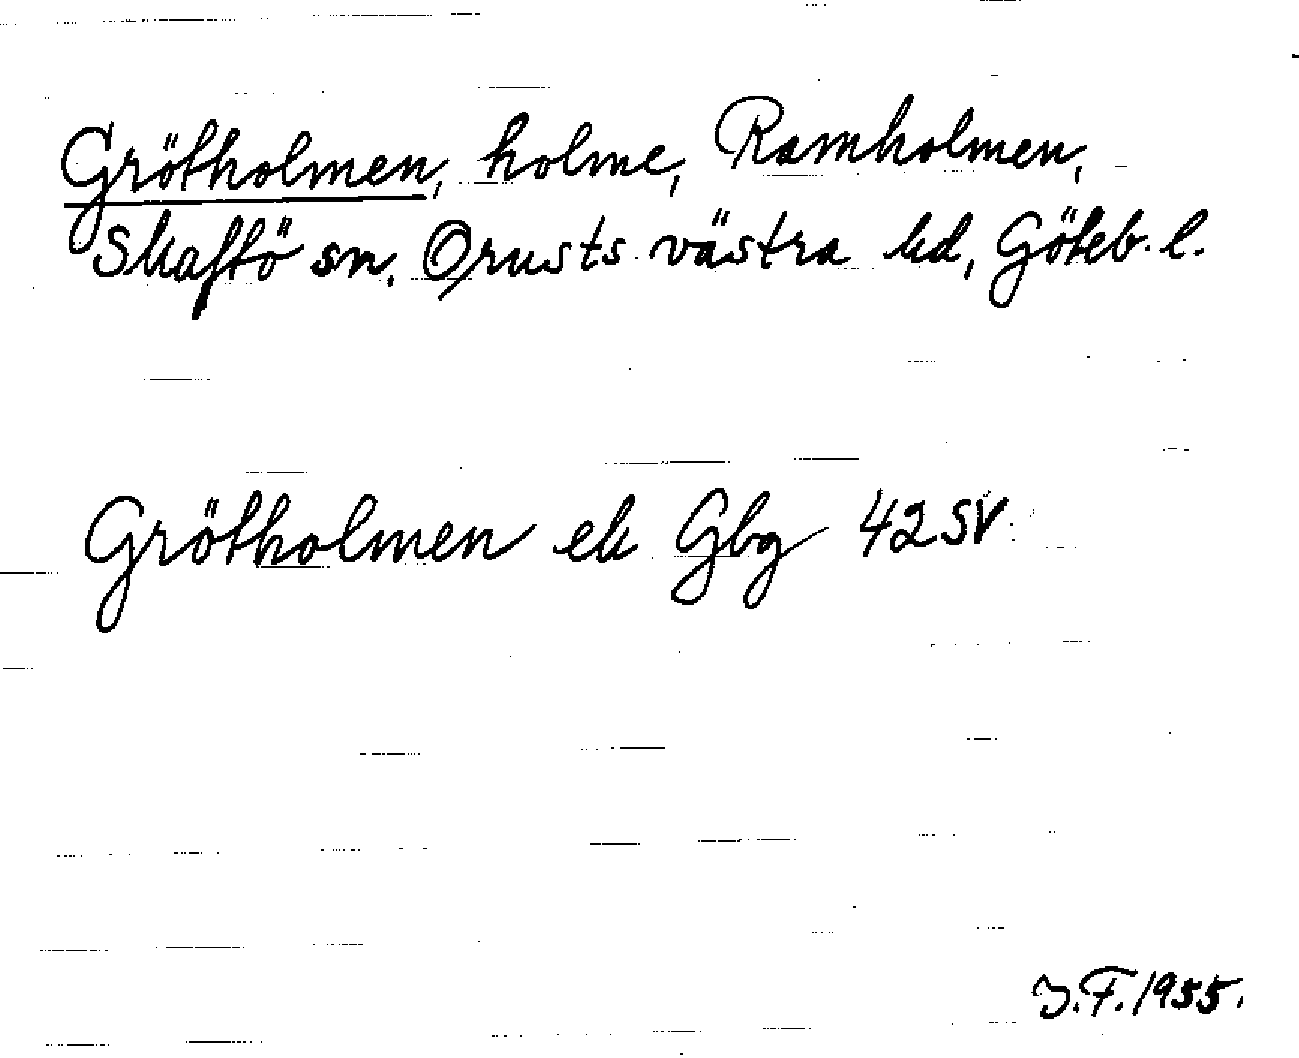 Grötholmen, holme, Ramholmen,
Skaftö sn. Orusts västra hd, Göteb. l.
Grötholmen ek Gbg 42 SV
J.F. 1955.